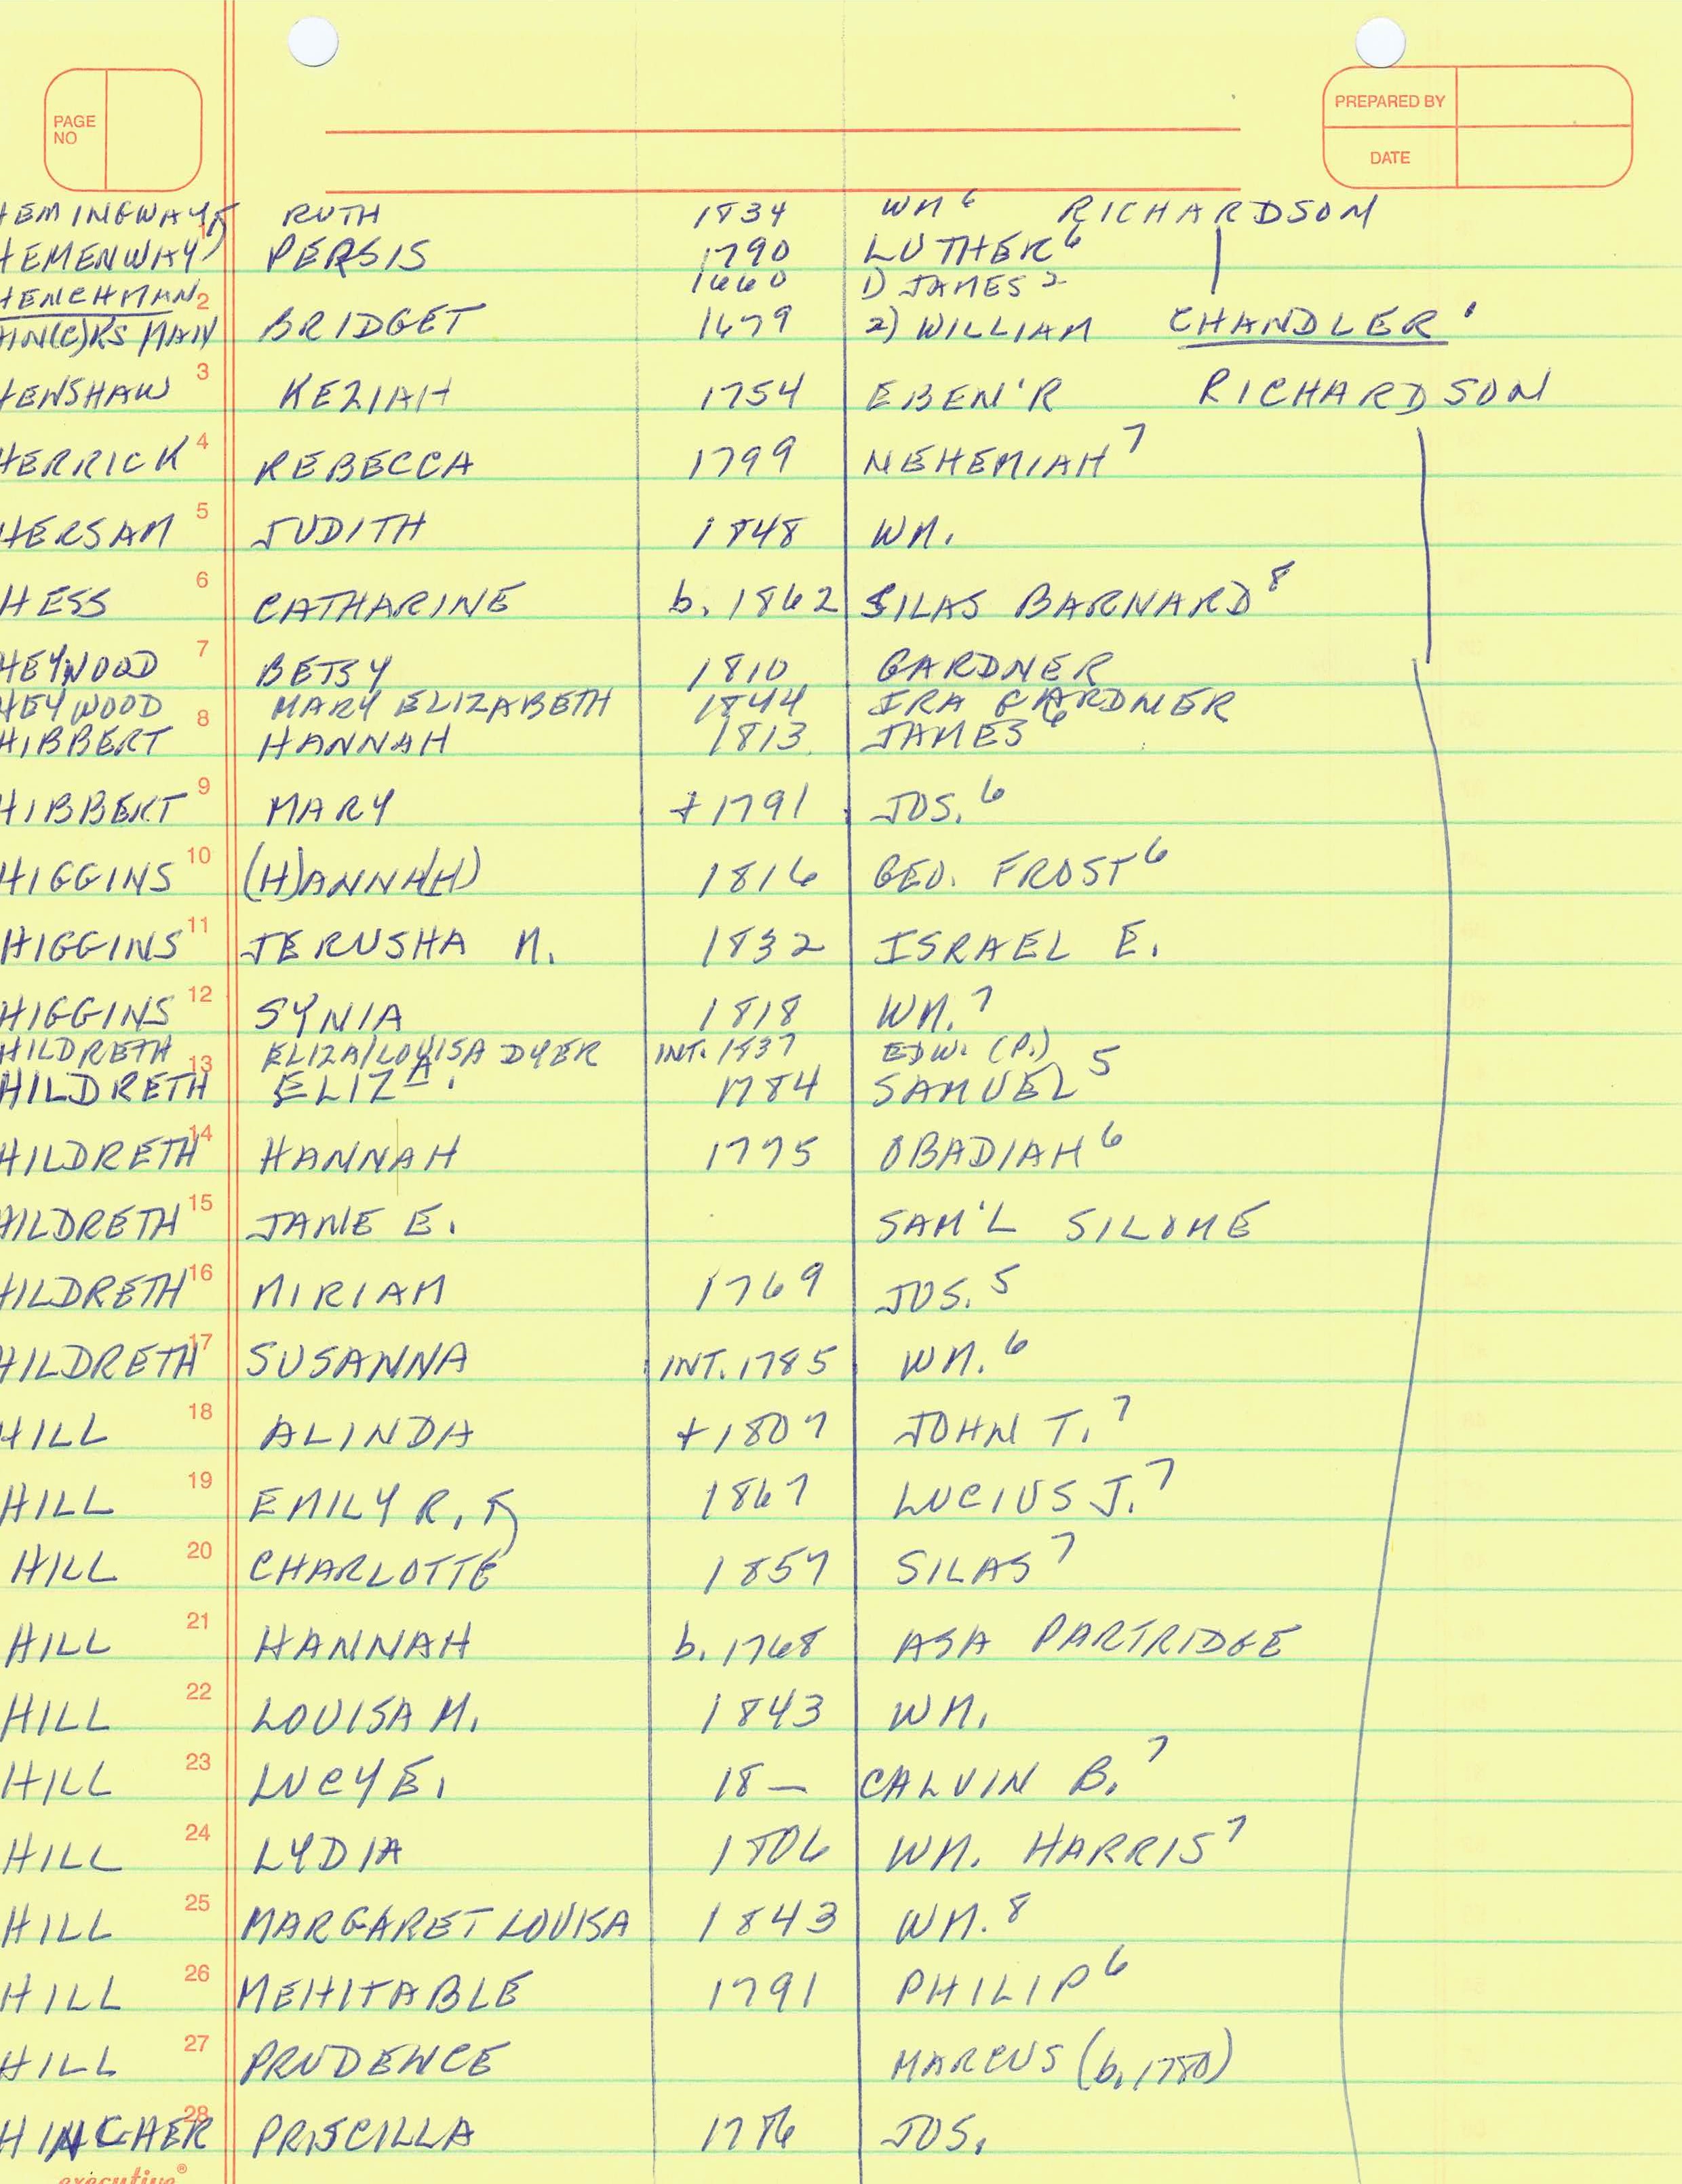 PAGE NO
PREPARED BY
DATE
HEMINGWAY RUTH 1834 WM 6 RICHARDSON
1 HEMENWAY PERSIS 1790 LUTHER 6
HENCHMAN 1660 1) JAMES 2
2 HIN(C)KSMAN BRIDGET 1679 2) WILLIAM CHANDLER 1
HENSHAW 3 KEZIAH 1754 EBEN'R RICHARDSON
HERRICK 4 REBECCA 1799 NEHEMIAH 7
HERSAM 5 JUDITH 1848 WM.
HESS 6 CATHARINE b. 1862 SILAS BARNARD 8
HEYWOOD 7 BETSY 1810 GARDNER
HEYWOOD MARY ELIZABETH 1844 IRA GARDNER
HIBBERT 8 HANNAH 1813 JAMES 6
HIBBERT 9 MARY +1791 JOS. 6
HIGGINS 10 (H)ANNA(H) 1816 GEO. FROST 6
HIGGINS 11 JERUSHA M. 1832 ISRAEL E.
HIGGINS 12 SYNIA 1818 WM. 7
HILDRETH ELIZA/LOUISA DYER INT. 1837 EDW. (P.)
HILDRETH 13 ELIZA. 1784 SAMUEL 5
HILDRETH 14 HANNAH 1775 OBADIAH 6
HILDRETH 15 JANE E. SAM'L SILOME
HILDRETH 16 MIRIAM 1769 JOS. 5
HILDRETH 17 SUSANNA INT. 1785 WM. 6
HILL 18 ALINDA +1807 JOHN T. 7
HILL 19 EMILY R. 1867 LUCIUS J. 7
HILL 20 CHARLOTTE 1857 SILAS 7
HILL 21 HANNAH b. 1768 ASA PARTRIDGE
HILL 22 LOUISA M. 1843 WM.
HILL 23 LUCY E. 18— CALVIN B. 7
HILL 24 LYDIA 1806 WM. HARRIS 7
HILL 25 MARGARET LOUISA 1843 WM. 8
HILL 26 MEHITABLE 1791 PHILIP 6
HILL 27 PRUDENCE MARCUS (b. 1780)
HINCHER 28 PRISCILLA 1786 JOS.
executive®